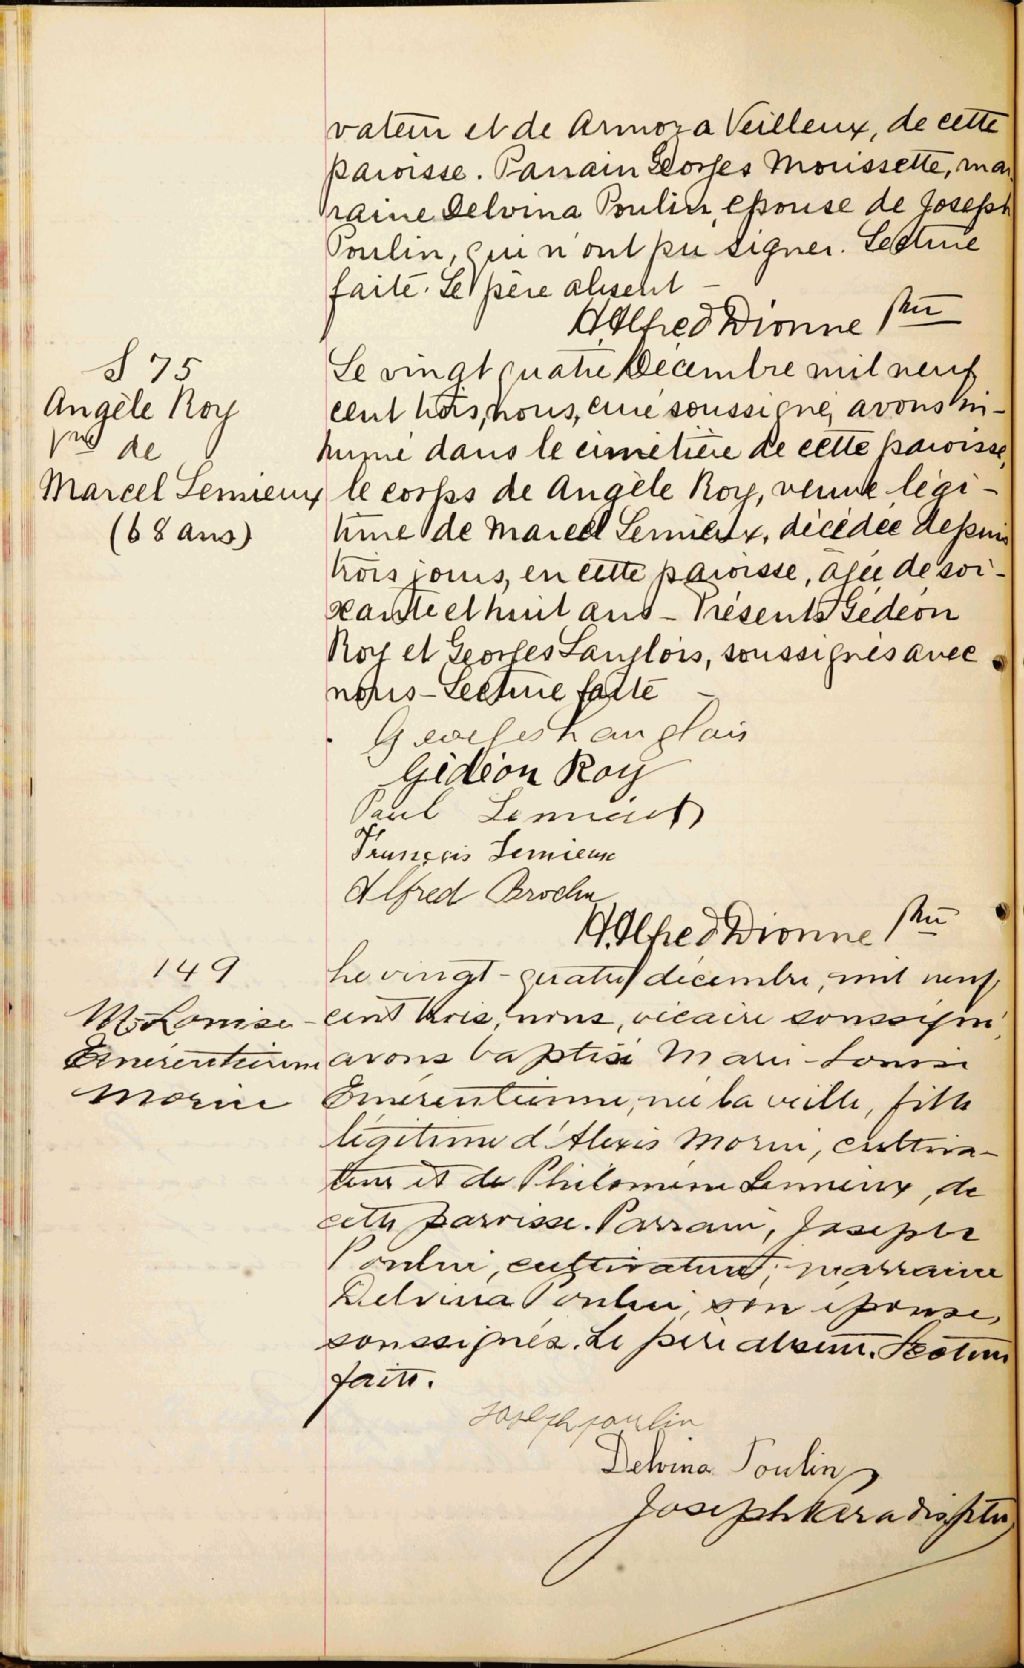 vateur et de Armoza Veilleux, de cette
paroisse. Parrain Georges Morissette, mar
raine Delvina Poulin, epouse de Joseph
Poulin, qui n'ont pu signer. Lecture
faite. Le père absent —
H. Alfred Dionne Ptre
S 75
Angèle Roy
Vve de
Marcel Lemieux
(68 ans)
Le vingt quatre Décembre mil neuf
cent trois, nous, curé soussigné, avons in-
humé dans le cimetière de cette paroisse,
le corps de Angèle Roy, veuve légi-
time de Marcel Lemieux, décédée depuis
trois jours, en cette paroisse, âgée de soi-
xante et huit ans — Présents Gédéon
Roy et Georges Langlois, soussignés avec
nous — Lecture faite —
Georges Langlois
Gédéon Roy
Paul Lemieux
François Lemieux
Alfred Brochu
H. Alfred Dionne Ptre
149
M. Louise-
Emérentienne
Morin
Le vingt-quatre décembre, mil neuf
cent trois, nous, vicaire soussigné,
avons baptisé Marie-Louise
Emérentienne, née la veille, fille
légitime d'Alexis Morin, cultiva-
teur et de Philomène Lemieux, de
cette paroisse. Parrain, Joseph
Poulin, cultivateur; marraine
Delvina Poulin, son épouse,
soussignés. Le père absent. Lecture
faite.
Joseph poulin
Delvina Poulin
Joseph Paradis, ptre